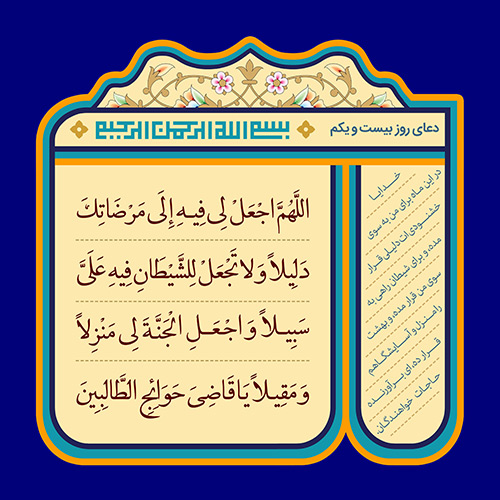 دعای روز بیست و یکم
بسم الله الرحمن الرحیم
اللَّهُمَّ اجْعَلْ لِی فِیهِ إِلَى مَرْضَاتِكَ
دَلِیلاً وَ لا تَجْعَلْ لِلشَّیْطَانِ فِیهِ عَلَیَّ
سَبِیلاً وَ اجْعَلِ الْجَنَّةَ لِی مَنْزِلاً
وَ مَقِیلاً یَا قَاضِیَ حَوَائِجِ الطَّالِبِینَ
خدایا
در این ماه برای من به سوی
خشنودی‌ات دلیلی قرار
مده، و برای شیطان راهی به
سوی من قرار مده، و بهشت
را منزل و آسایشگاهم
قرار ده، ای برآورنده
حاجات خواهندگان.